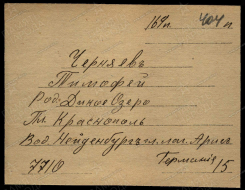 169п 404 п
Черняевъ
Тимофей
Род. Дикое Озеро
Пл. Краснополь
Вод. Нейденбургъ гл. лаг. Арисъ
7710 Германія 15